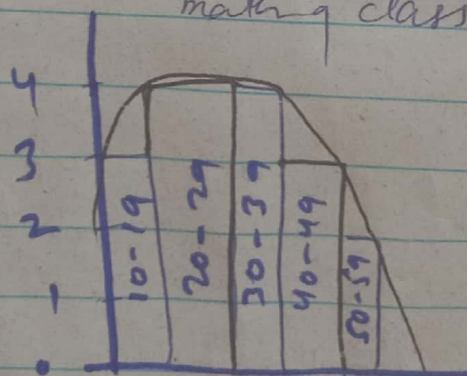 class
4
3
2
1
10-19
20-29
30-39
40-49
50-59